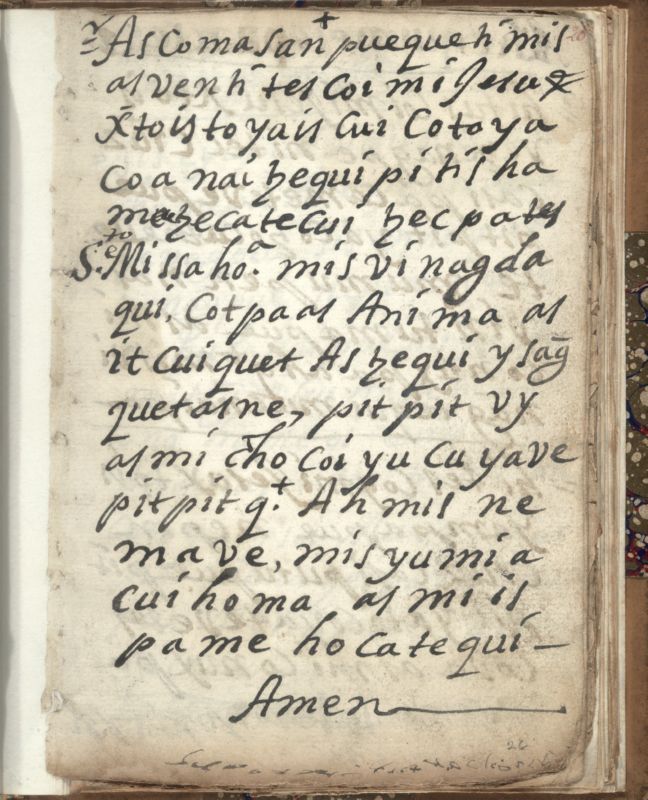 As comasañ pueque tī mis
as ven tī tes coi mi Jesu
x̄to is to yais cui cotoya
coa nai hequi pi tis ha
hecatecui hec pa tes
S.to Missa ho.a mis vi nagda
qui, cot pa as Anima as
it cuiquet As hequi y sag̃
quet as ne, pit pit vy
as mi c̃ho coi yu cu yave
pit pit q.+ Ah mis ne
ma ve, mis yu mi a
cui ho ma as mi is
pa me ho ca te qui —
Amen
26